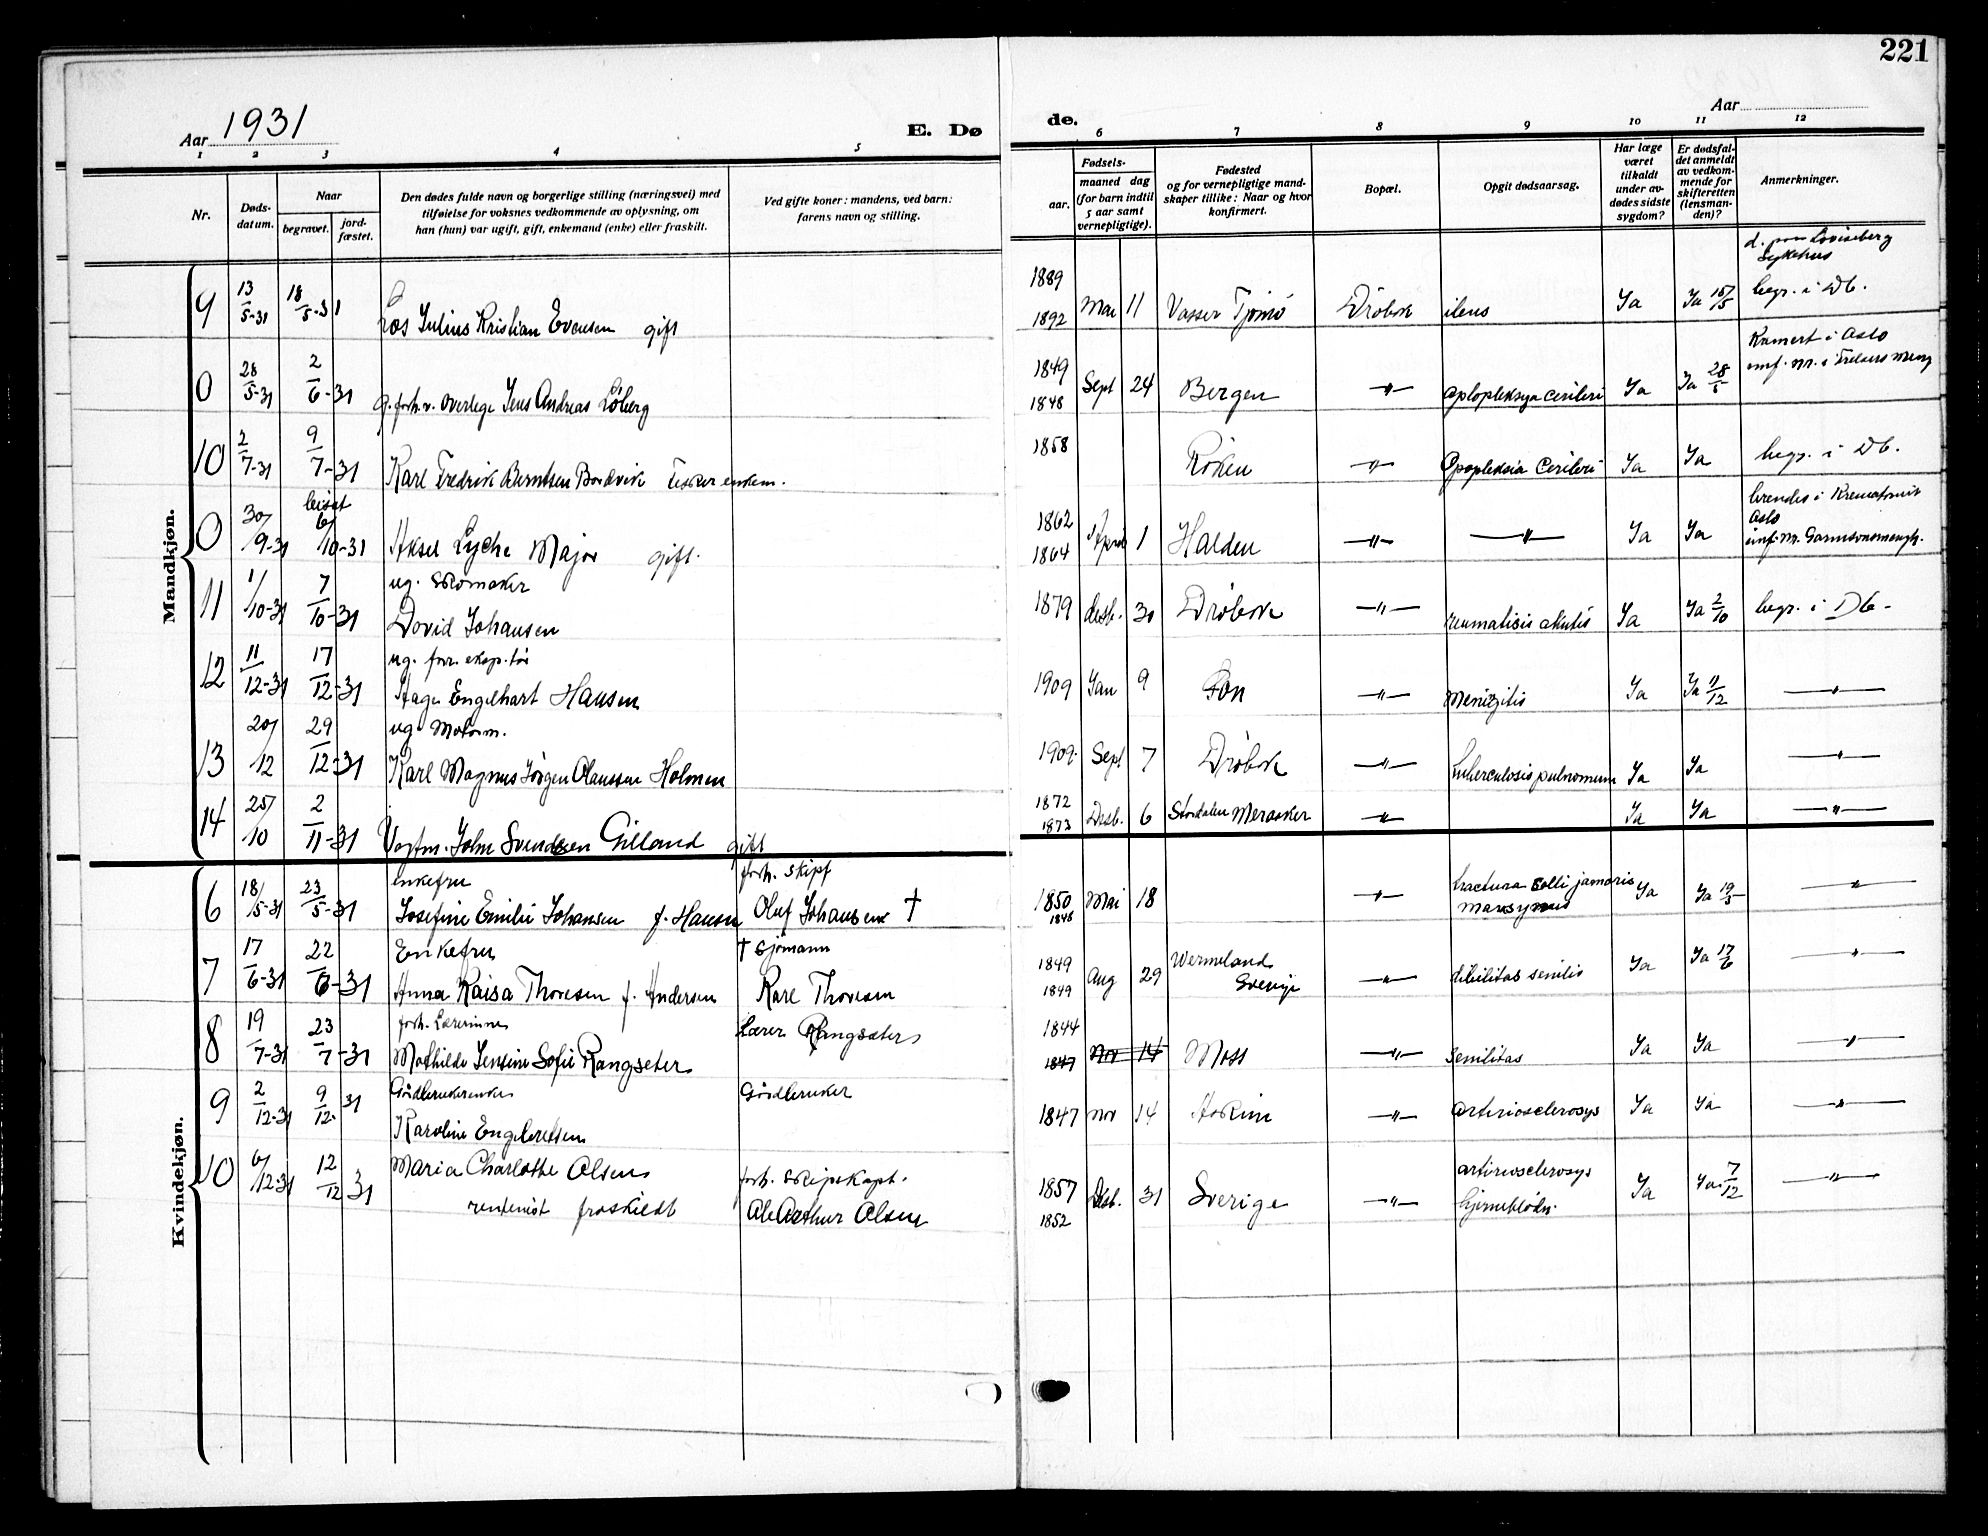 221
Aar 1931
E. Dø
de.
Aar
1 2 3 4 5
6 7 8 9 10 11 12
Nr.
Døds-
datum.
Naar
begravet.
jord-
fæstet.
Den dødes fulde navn og borgerlige stilling (næringsvei) med
tilføielse for voksnes vedkommende av oplysning, om
han (hun) var ugift, gift, enkemand (enke) eller fraskilt.
Ved gifte koner: mandens, ved barn:
farens navn og stilling.
Fødsels-
aar.
maaned dag
(for barn indtil
5 aar samt
vernepligtige).
Fødested
og for vernepligtige mand-
skaper tillike: Naar og hvor
konfirmert.
Bopæl.
Opgit dødsaarsag.
Har læge
været
tilkaldt
under av-
dødes sidste
sygdom?
Er dødsfal-
det anmeldt
av vedkom-
mende for
skifteretten
(lensman-
den)?
Anmerkninger.
Mandkjøn.
9 13/5-31 18/5-31 Los Julius Kristian Evensen gift
1889 1892 Mai 11 Vasser Tjømø Drøbak ileus Ja Ja 15/5
d. paa Lovisenberg
Sykehus
begr. i Db.
0 28/5-31 2/6-31 g. forh.v. overlege Jens Andreas Löberg
1849 1848 Sept 24 Bergen -"- Aplopleksya cerileri Ja Ja 28/5
Kremert i Oslo
innf. nr. i Frelsers menig
10 2/7-31 9/7-31 Karl Fredrik Berntsen Bordvik Fisker enkem.
1858 Röken -"- Apopleksia Cerileri Ja Ja begr. i Db.
0 30/9-31 bisat 6/10-31 Aksel Lyche Major gift.
1862 1864 April 1 Halden -"- -"- Ja Ja
brendes i Krematoriet
Oslo
innf. nr. Garnisonsmengh.
11 1/10-31 7/10-31 ug. Skomaker
David Johansen
1879 desb. 30 Drøbak -"- reumatisis akutis Ja Ja 2/10 begr. i Db-
12 11/12-31 17/12-31 ug. forr. eksp.tør
Aage Engelhart Hansen
1909 Jan 9 Son -"- Meningitis Ja Ja 11/12 -"-
13 20/12 29/12-31 ug Motorm.
Karl Magnus Jörgen Olaussen Holmen
1909. Sept 7 Drøbak -"- tuberculosis pulmonum Ja Ja -"-
14 25/10 2/11-31 Vagtm. John Svendsen Gilland gift
1872 1873 Desb. 6 Stordalen Meraaker -"- Ja Ja -"-
Kvindekjøn.
6 18/5-31 23/5-31 enkefru
Josefine Emilie Johansen f. Hansen
forh. skipf
Oluf Johansen †
1850 1848 Mai 18 -"- fractura colli jamoris Ja Ja 19/5 -"-
7 17/6-31 22/6-31 Enkefru
Anna Kaisa Thoresen f. Andersen
† Sjömann
Karl Thoresen
1849 1849 Aug 29 Wermeland
Sverige -"- debilitas senilis Ja Ja 17/6 -"-
8 19/7-31 23/7-31 forh. Lærerinne
Mathilde Jensine Sofie Rangseter
Lærer Rangsæter
1844 1847 Nov 14 Moss -"- Senilitas Ja Ja -"-
9 2/12-31 9/12-31 Gårdbrukerenke
Karoline Engebretsen
Gårdbruker
1847 Nov 14 Askim -"- artiriosclerosys Ja Ja -"-
10 6/12-31 12/12 31 Maria Charlotte Olsen
rentenist fraskildt
forh. skipskapt.
Ale Arthur Olsen
1857 1852 Desb. 31 Sverige -"- artiriosclerosys
hjerneblødn. Ja Ja 7/12 -"-